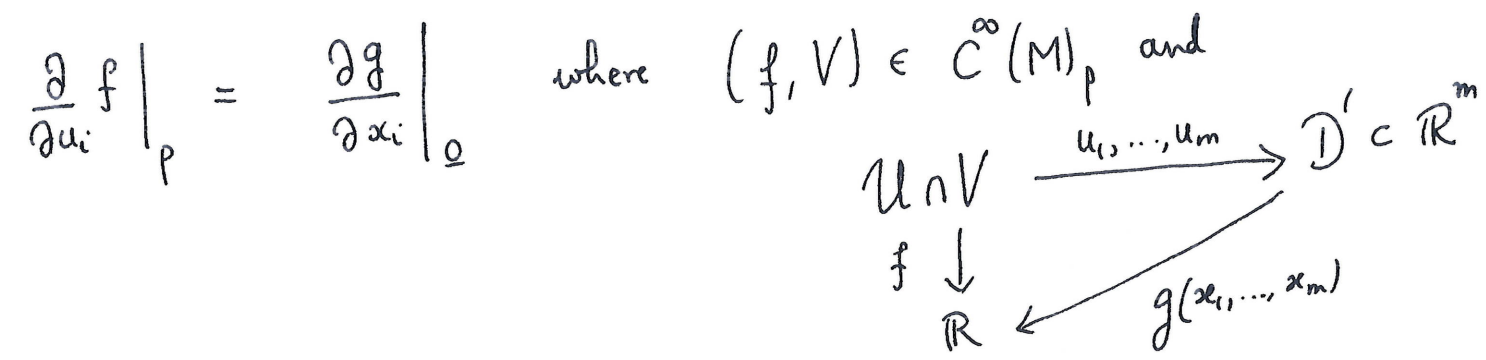 ∂/∂uᵢ f |ₚ = ∂g/∂xᵢ |_0̲ where (f, V) ∈ C^∞(M)ₚ and
U ∩ V —u₁, ..., uₘ→ D′ ⊂ ℝᵐ
f ↓ ↙ g(x₁, ..., xₘ)
ℝ